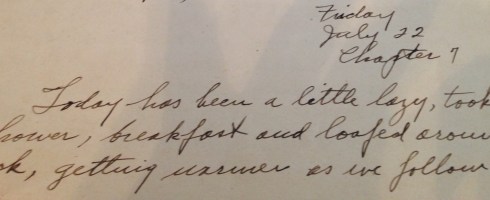 Friday
July 22
Chapter 7
Today has been a little lazy, took
hower, breakfast and loafed aroun
ok, getting warmer as we follow